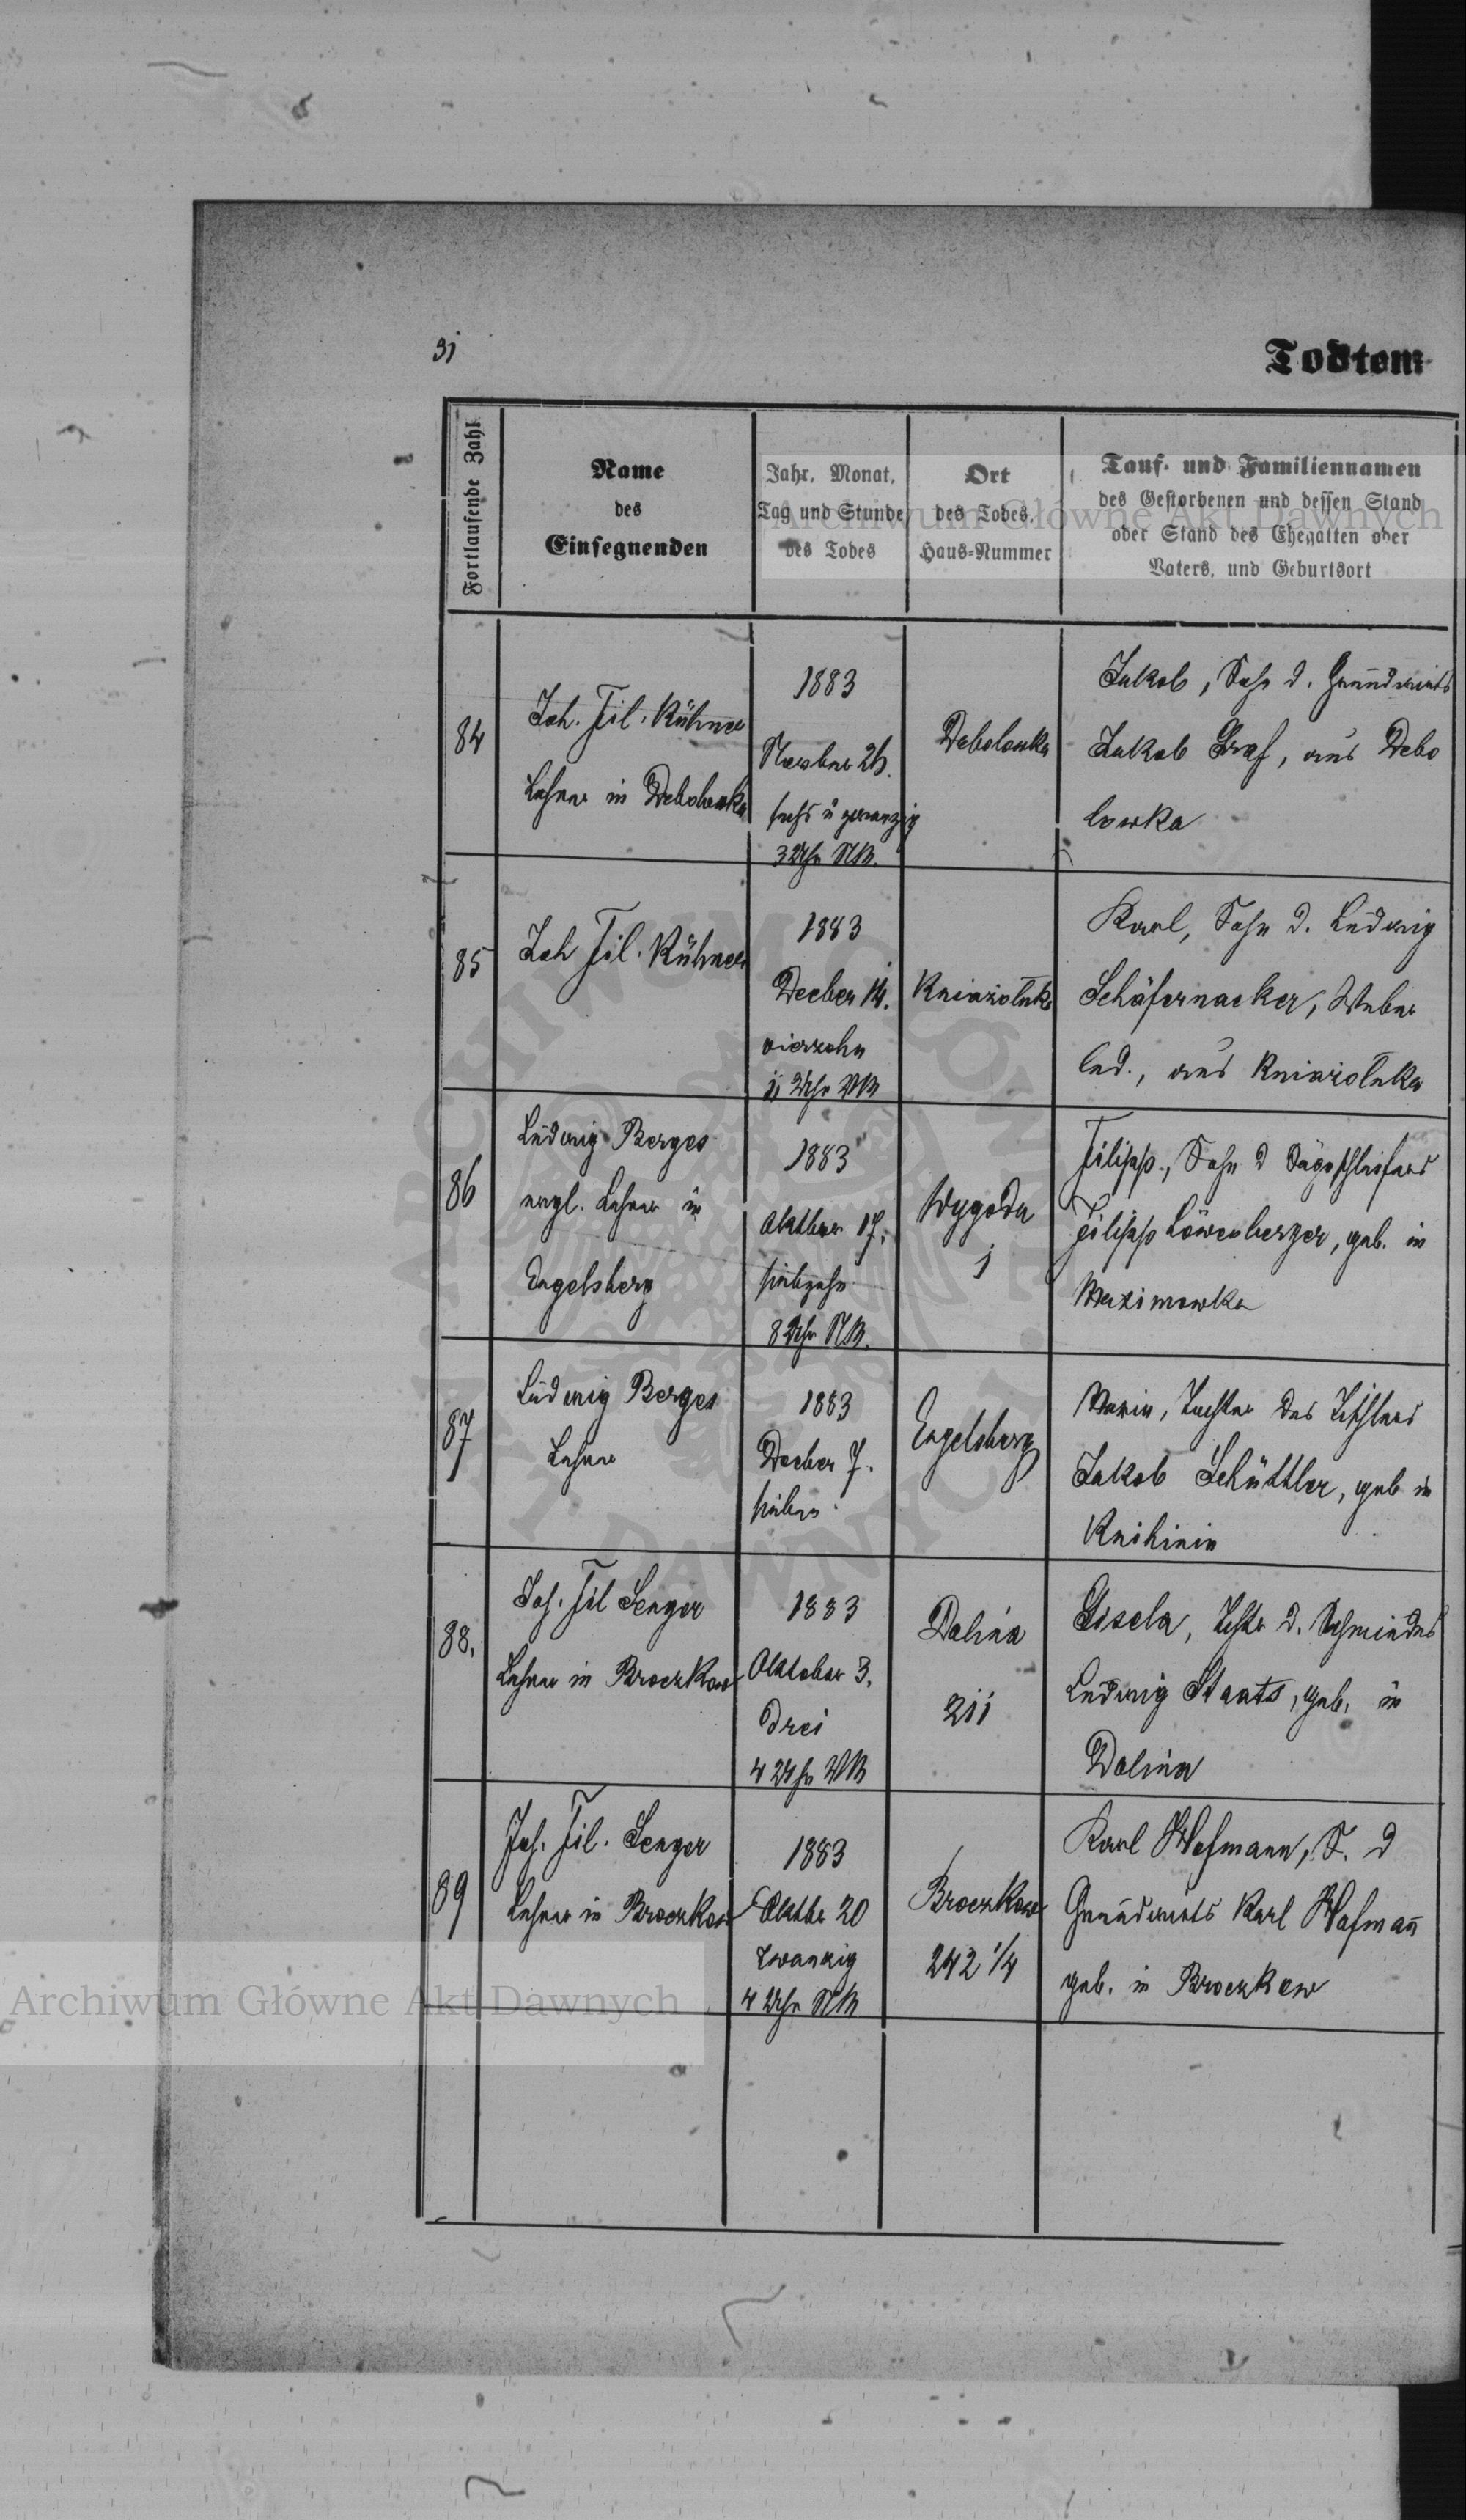 31
Todten-
Fortlaufende Zahl
Name
des
Einsegnenden
Jahr, Monat,
Tag und Stunde
des Todes
Ort
des Todes,
Haus-Nummer
Tauf- und Familiennamen
des Gestorbenen und dessen Stand
oder Stand des Ehegatten oder
Vaters, und Geburtsort
Archiwum Główne Akt Dawnych
84
Joh. Fil. Kühner
Lehrer in Debolowka
1883
Novber 26.
sechs u zwanzig
3 Uhr NM.
Debolowka
Jakob, Sohn d. Grundwirts
Jakob Graf, aus Debo
lowka
85
Joh Fil. Kühner
1883
Decber 14.
vierzehn
11 Uhr VM
Kniazoluka
Karl, Sohn d. Ludwig
Schäfernacker, Weber
led., aus Kniazoluka
86
Ludwig Berges
evgl. Lehrer in
Engelsberg
1883
Oktber 17.
siebzehn
8 Uhr NM.
Wygoda
1
Filipp, Sohn d Sägeschleifers
Filipp Löwenberger, geb. in
Maximowka
87
Ludwig Berges
Lehrer
1883
Decber 7.
sieben
Engelsberg
Maria, Tochter des Tischlers
Jakob Schüttler, geb in
Knihinin
88.
Joh. Fil Senger
Lehrer in Broczkow
1883
Oktober 3.
drei
4 Uhr VM
Dolina
211
Gisela, Tchtr d. Schmiedes
Ludwig Staats, geb. in
Dolina
89
Joh. Fil. Senger
Lehrer in Broczkow
1883
Oktbr 20
zwanzig
4 Uhr NM
Broczkow
242 1/4
Karl Hofmann, S. d
Grundwirts Karl Hofmañ
geb. in Broczkow
Archiwum Główne Akt Dawnych
ARCHIWUM GŁÓWNE AKT DAWNYCH